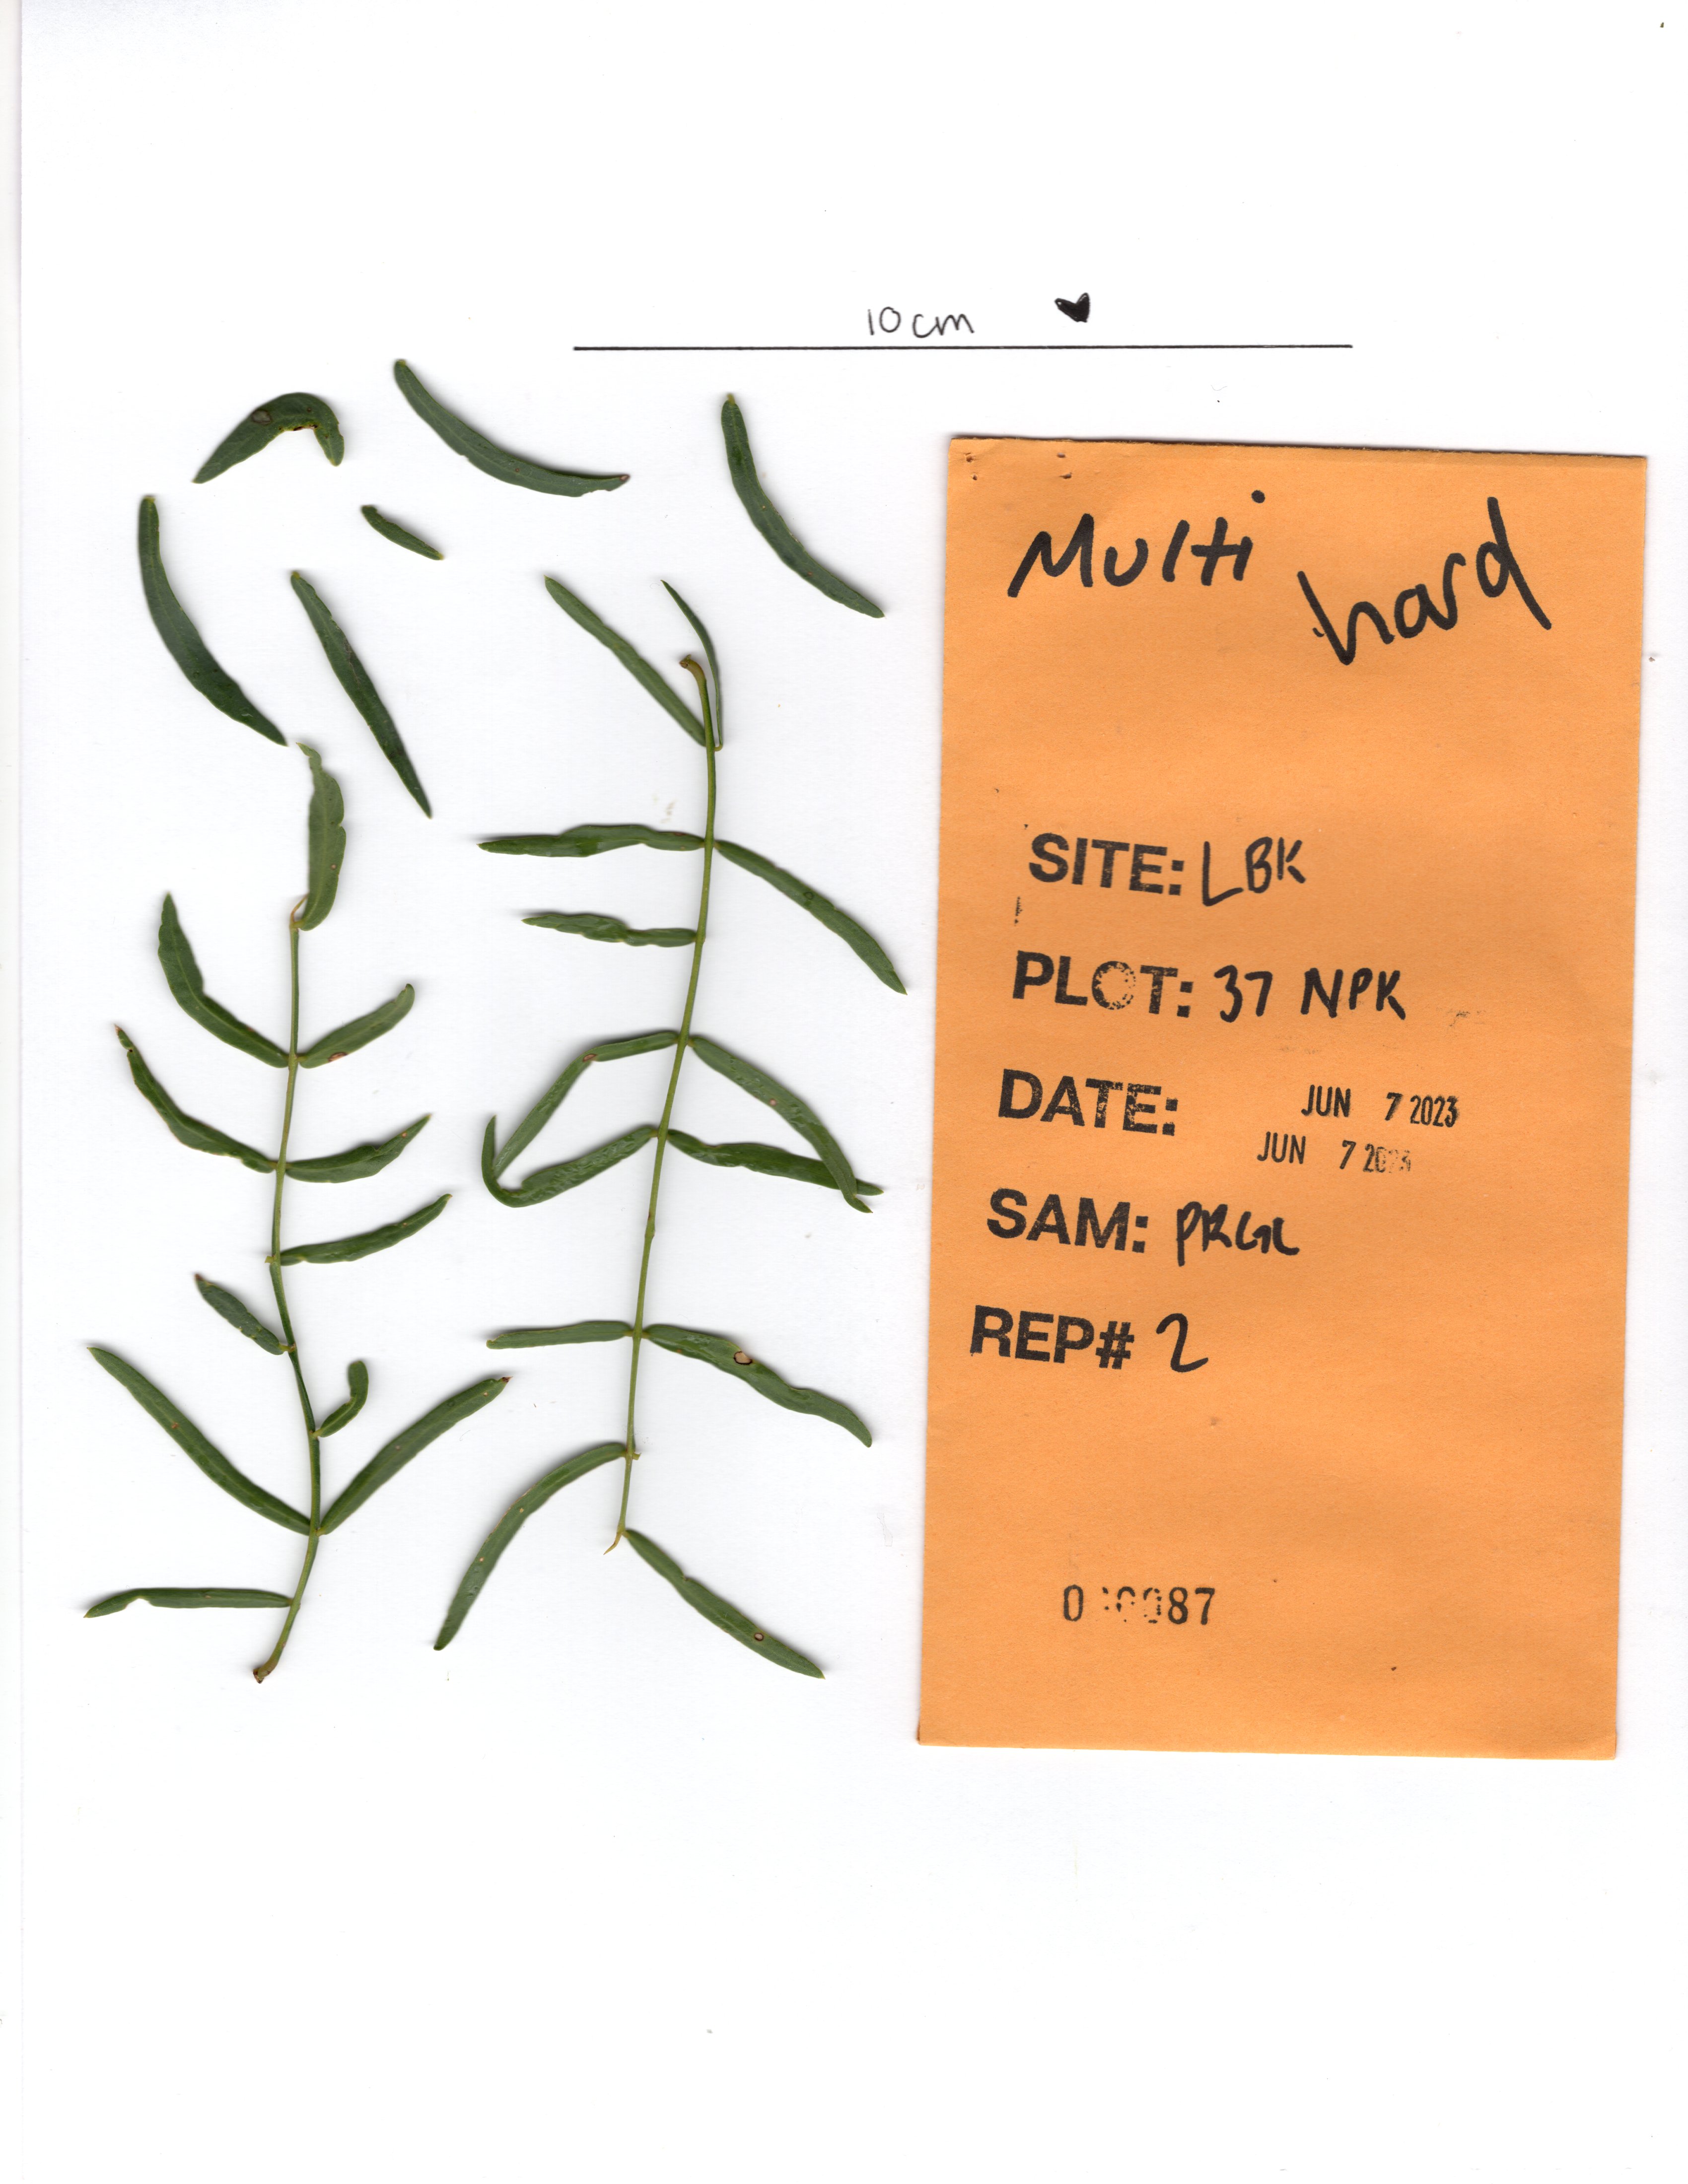 10cm
Multi
hard
SITE: LBK
PLOT: 37 NPK
DATE: JUN 7 2023
JUN 7 2023
SAM: PRGL
REP# 2